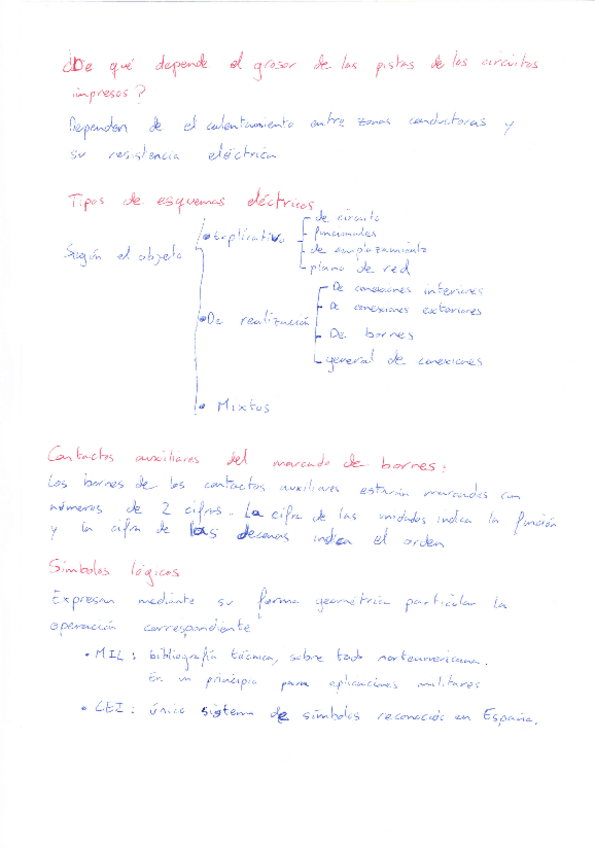 ¿De qué depende el grosor de las pistas de los circuitos
impresos?
Dependen de el calentamiento entre zonas conductoras y
su resistencia eléctrica
Tipos de esquemas eléctricos
Según el objeto
• Explicativo
- de circuito
- funcionales
- de emplazamiento
- plano de red
• De realización
- De conexiones interiores
- De conexiones exteriores
- De bornes
- general de conexiones
• Mixtos
Contactos auxiliares del marcado de bornes:
Los bornes de los contactos auxiliares estarán marcados con
números de 2 cifras. La cifra de las unidades indica la función
y la cifra de las decenas indica el orden
Símbolos lógicos
Expresan mediante su forma geométrica particular la
operación correspondiente
• MIL: bibliografía técnica, sobre todo norteamericana.
En un principio para aplicaciones militares
• CEI: único sistema de símbolos reconocido en España.